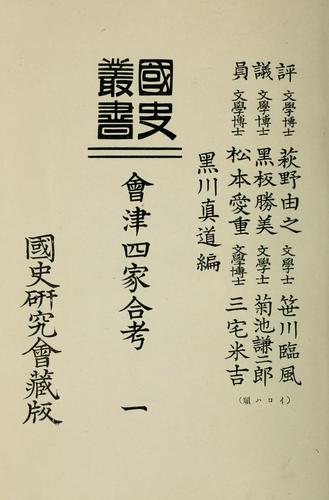 評 文學博士 萩野由之 文學士 笹川臨風
議 文學博士 黑板勝美 文學士 菊池謙二郎
員 文學博士 松本愛重 文學博士 三宅米吉
(イロハ順)
黑川真道編
國史叢書
會津四家合考 一
國史研究會藏版